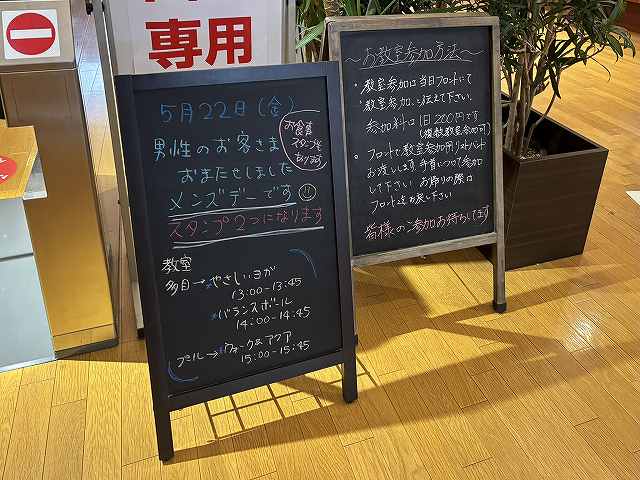 専用
5月22日(金)
男性のお客さま
おまたせしました
メンズデーです
スタンプ2つになります
お食事
スタンプも
教室
多目→やさしいヨガ
13:00-13:45
バランスボール
14:00-14:45
プール→ウォーク&アクア
15:00-15:45
～お教室参加方法～
・教室参加は当日フロントにて
"教室参加"と伝えて下さい。
参加料は1日200円です
(複数教室参加可)
・フロントで教室参加用リストバンド
お渡しします。手首につけて参加
して下さい お帰りの際は
フロントまでお戻し下さい
皆様のご参加お待ちしてます